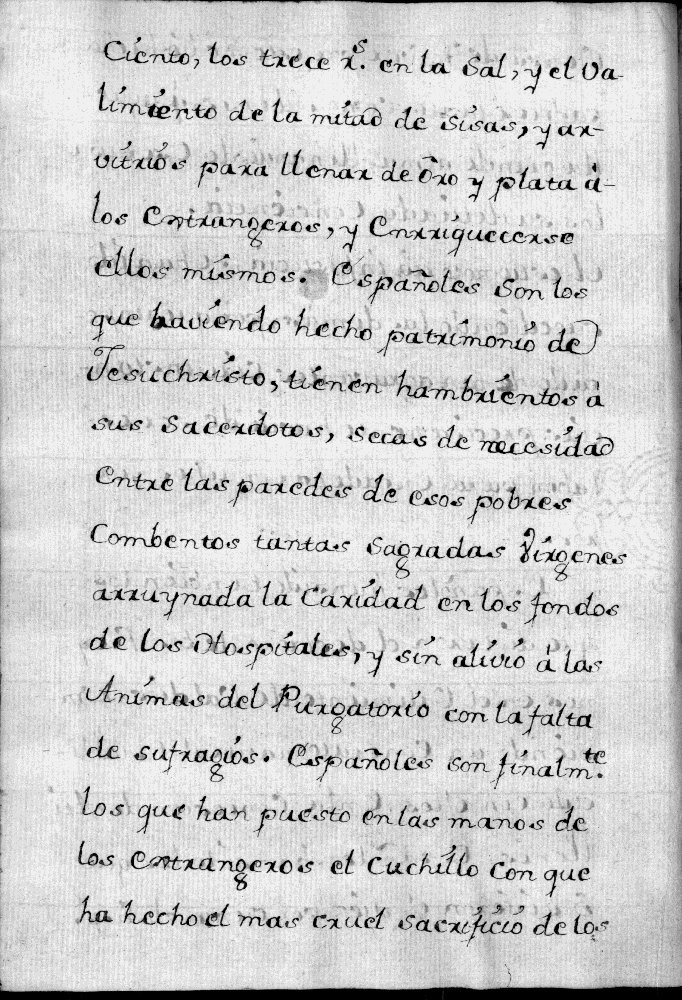 Ciento, los trece r.s en la Sal, y el Va-
limiento de la mitad de sisas, y ar-
vitrios para llenar de ôro y plata á-
los Entrangeros, y Enrriquecerse
ellos mismos. Españoles son los
que haviendo hecho patrimonio de
Jesuchristo, tienen hambrientos a
sus Sacerdotos, secas de necesidad
entre las paredes de esos pobres
Combentos tantas sagradas Virgenes
arruynada la Caridad en los fondos
de los Hospitales, y sin alivio à las
Animas del Purgatorio con la falta
de sufragios. Españoles son finalm.te
los que han puesto en las manos de
los entrangeros el Cuchillo con que
ha hecho el mas cruel sacrificio de los